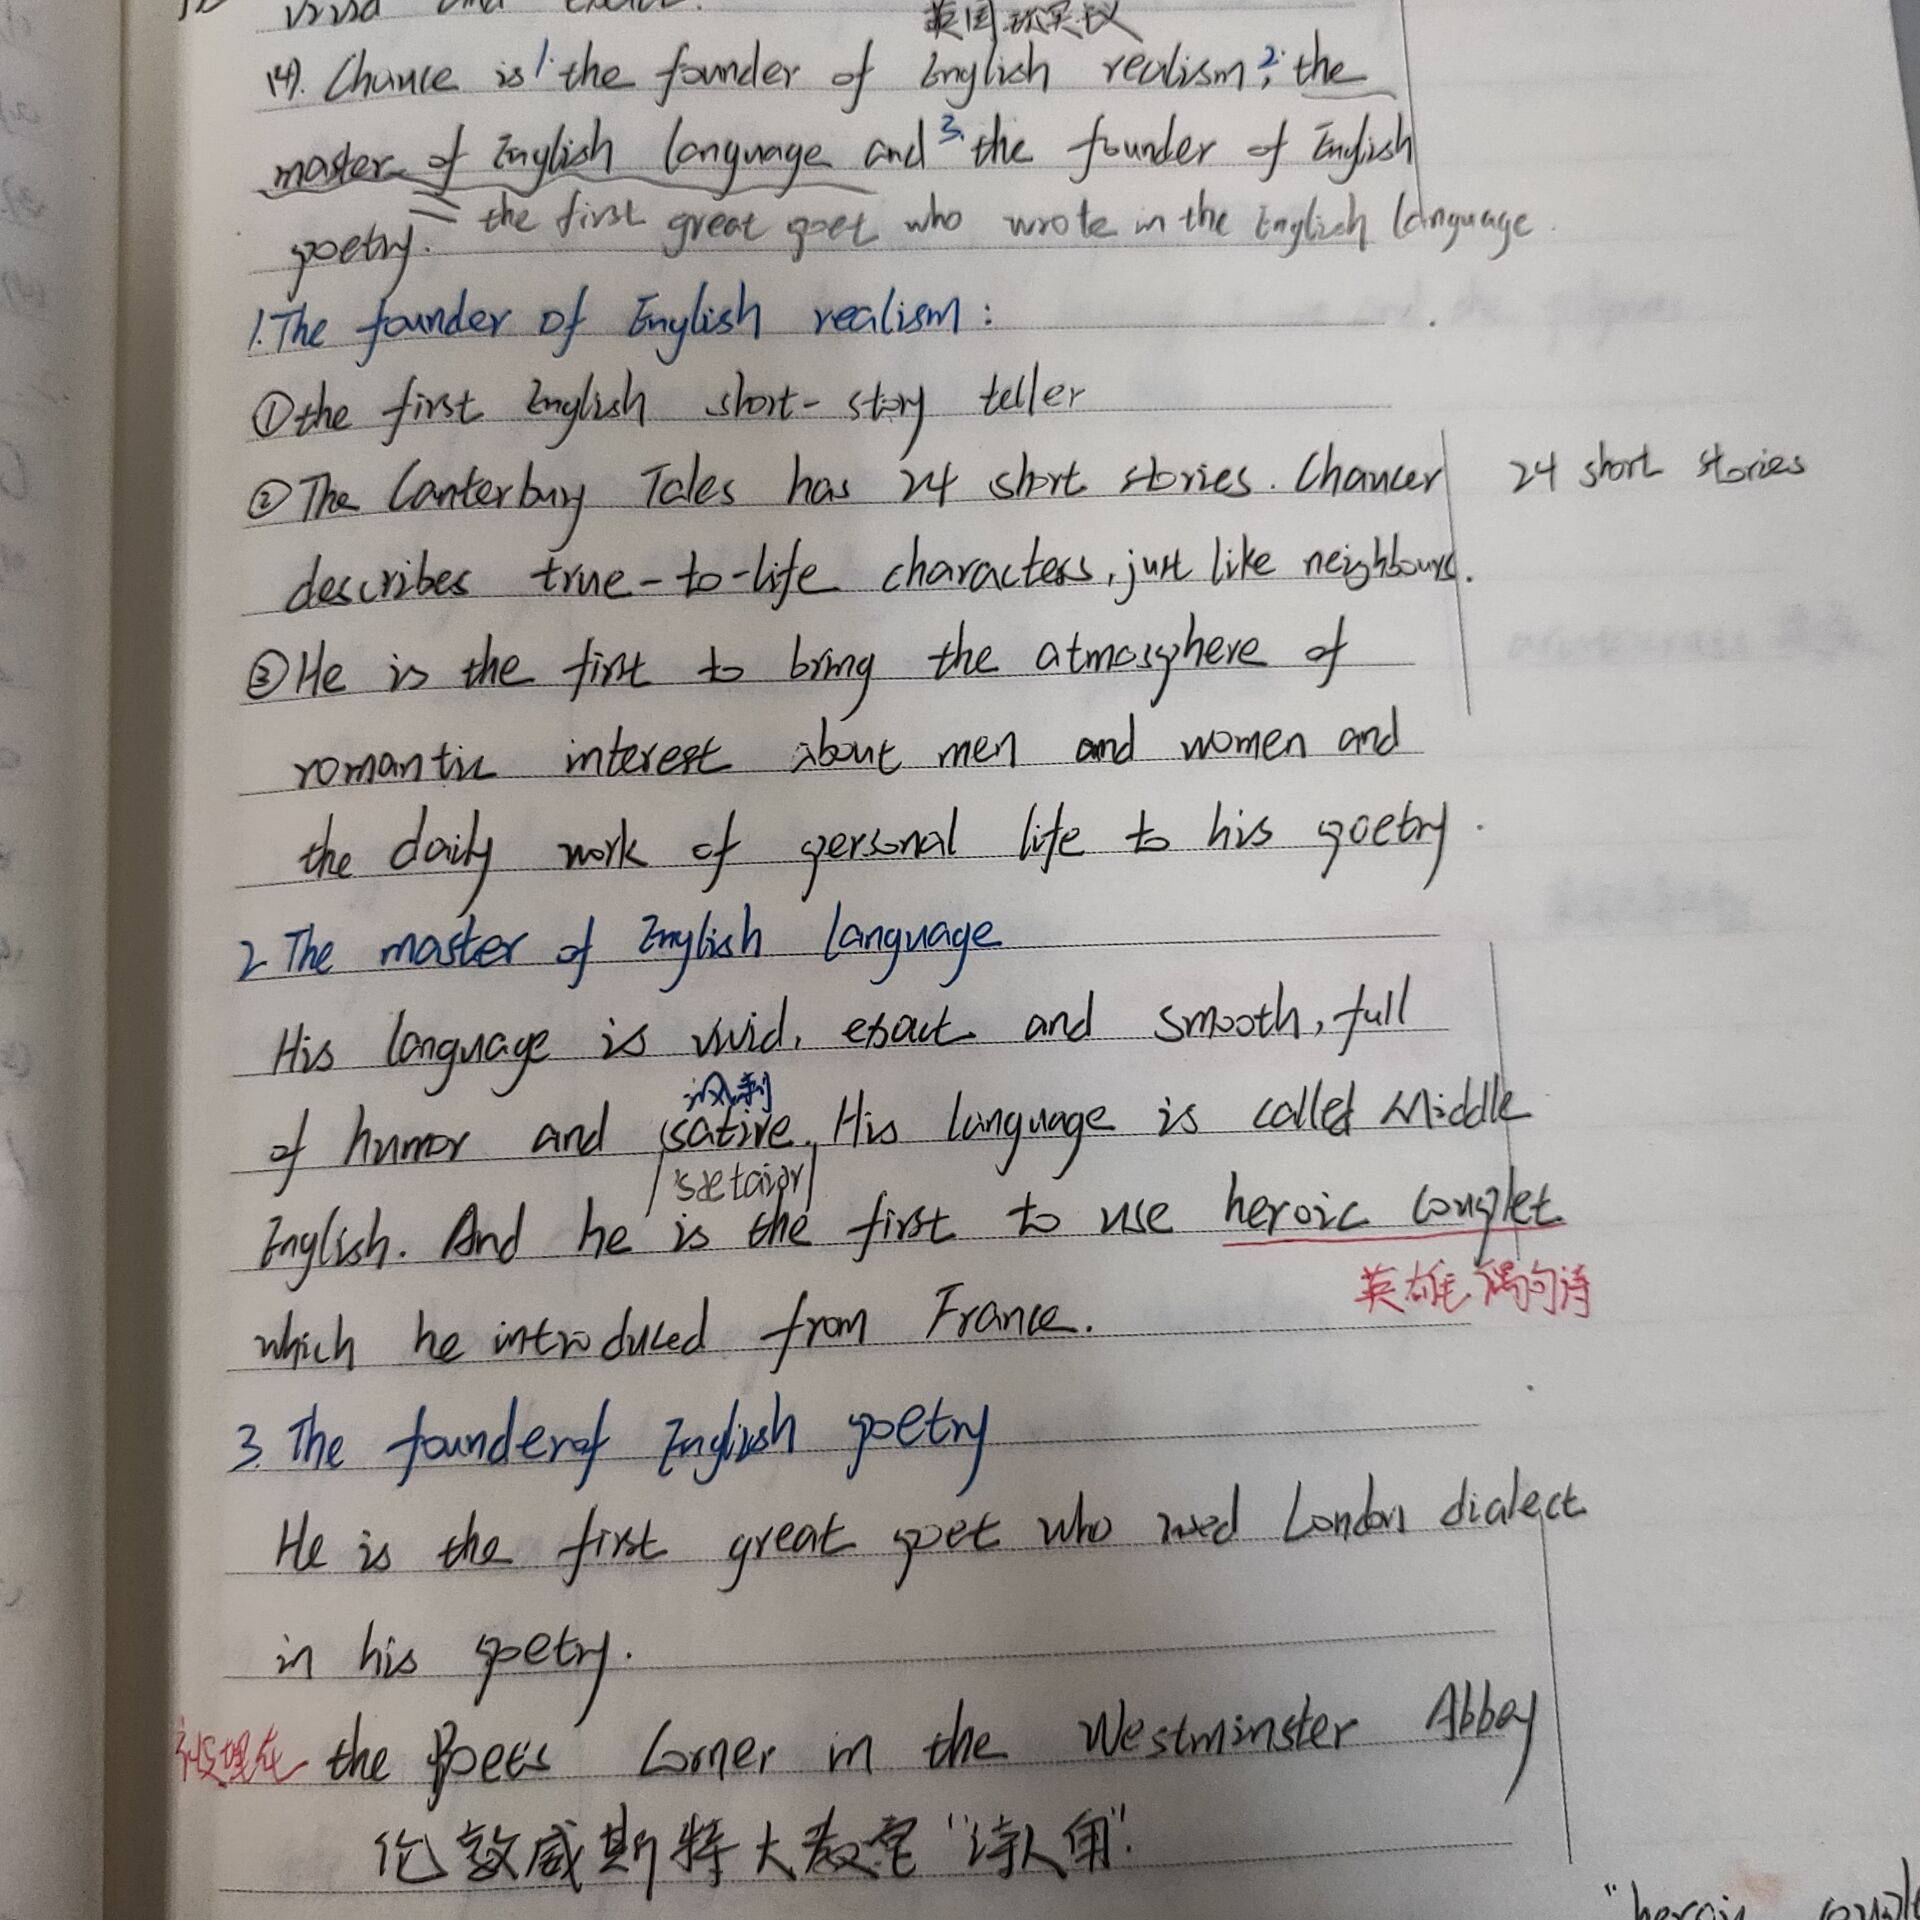 vivid and exact.
英国现实主义
(4). Chauce is 1. the founder of English realism 2; the
master of English language and 3. the founder of English
poetry. = the first great poet who wrote in the English language.
1. The founder of English realism:
①the first English short-story teller
②The Canterbury Tales has 24 short stories. Chaucer 24 short stories
describes true-to-life characters, just like neighbours.
③He is the first to bring the atmosphere of
romantic interest about men and women and
the daily work of personal life to his poetry.
2 The master of English language
His language is vivid, exact and smooth, full
讽刺
of humor and satire. His language is called Middle
/'sætaiər/
English. And he is the first to use heroic couplet
英雄 偶句诗
which he introduced from France.
3. The founder of English poetry
He is the first great poet who used London dialect
in his poetry.
被埋在 the Poets Corner in the Westminster Abbey
伦敦威斯特大教堂 "诗人角".
"heroic couplet